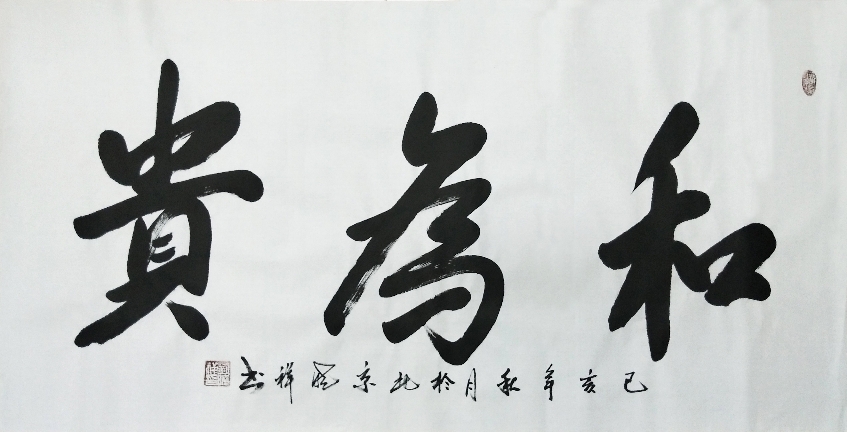 和為貴
己亥年秋月於北京
祥书